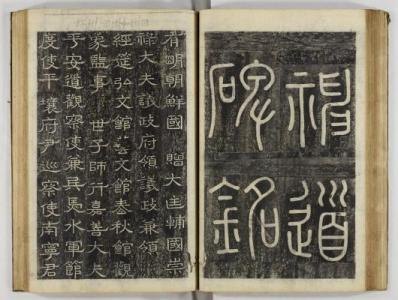 神道
碑銘
有明朝鮮國 贈大匡輔國崇
祿大夫議政府領議政兼領
經筵弘文館藝文館春秋館觀
象監事 世子師行嘉善大夫
平安道觀察使兼兵馬水軍節
度使平壤府尹巡察使南寧君